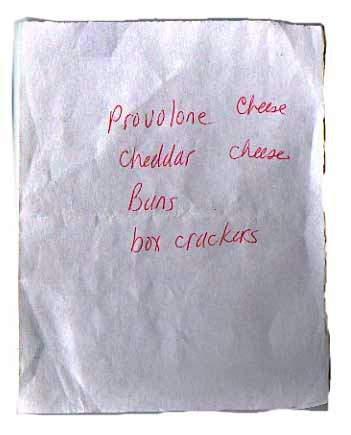 Provolone cheese
cheddar cheese
Buns
box crackers